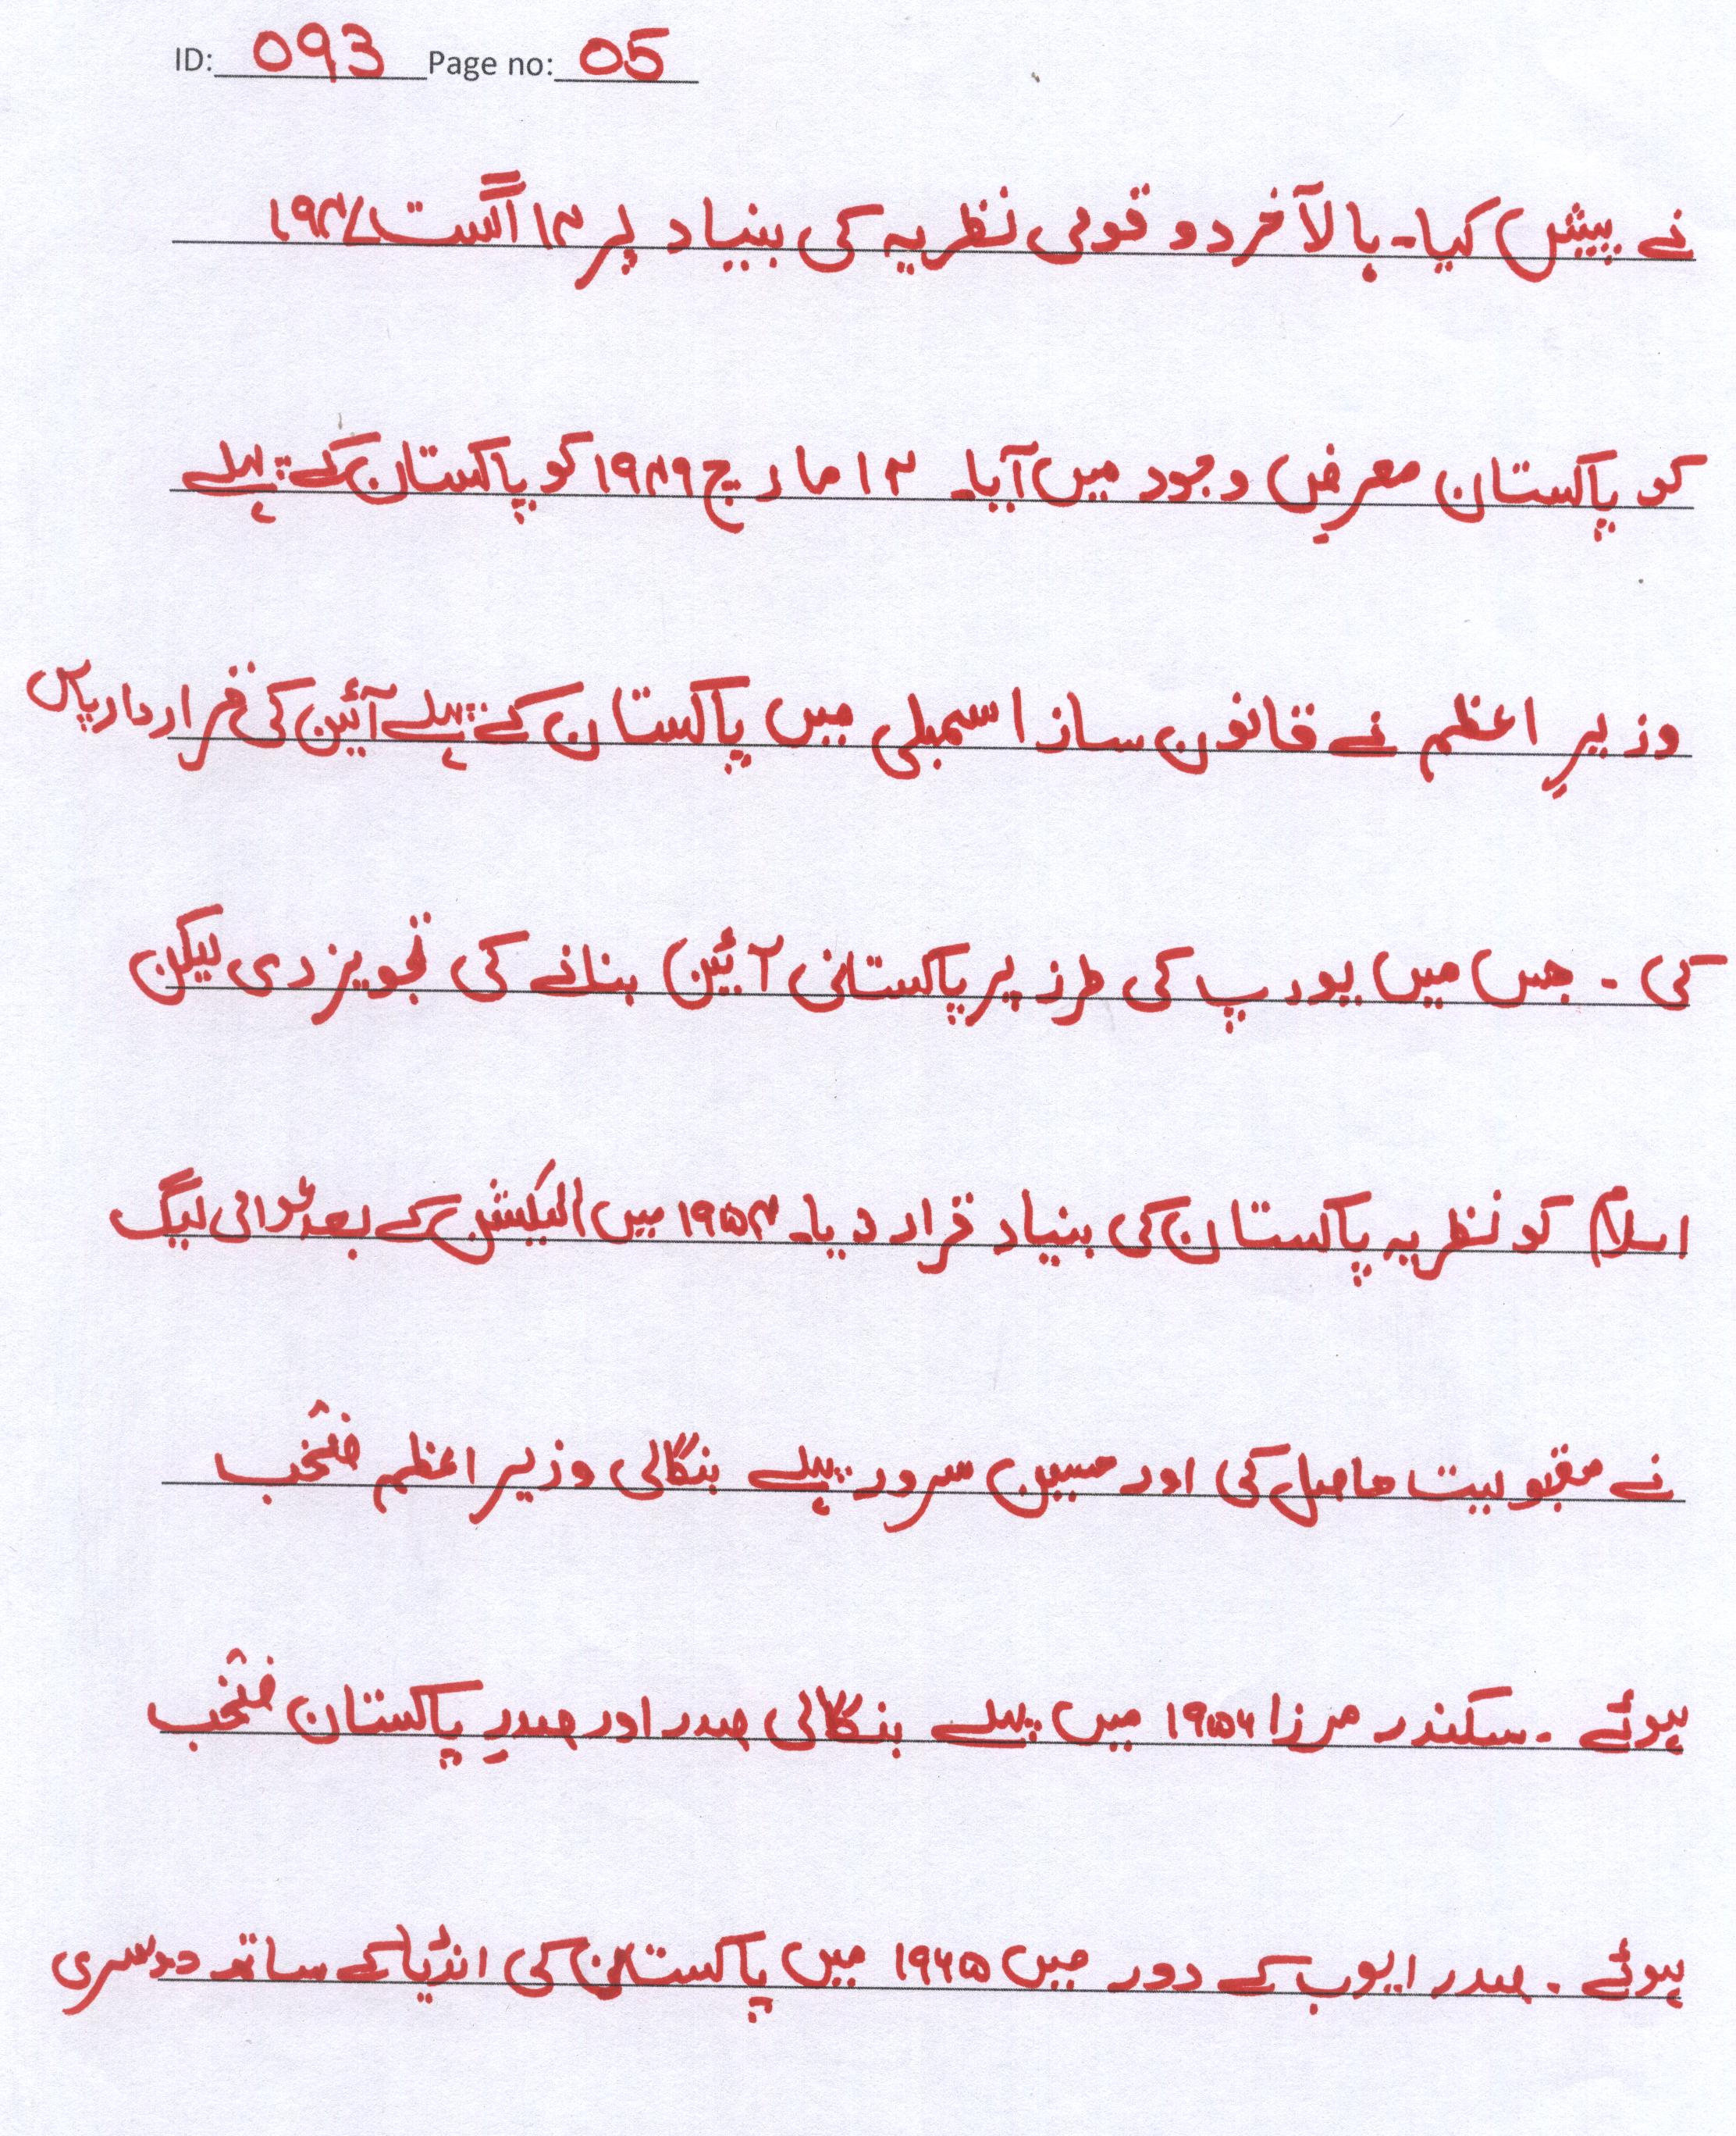 ID: 093 Page no: 05
نے پیش کیا۔ بالآخر دو قومی نظریہ کی بنیاد پر ۱۴ اگست ۱۹۴۷
کو پاکستان معرض وجود میں آیا۔ ۱۲ مارچ ۱۹۴۹ کو پاکستان کے پہلے
وزیرِ اعظم نے قانون ساز اسمبلی میں پاکستان کے پہلے آئین کی قرارداد پاس
کی ۔ جس میں یورپ کی طرز پر پاکستانی آئین بنانے کی تجویز دی لیکن
اسلام کو نظریہ پاکستان کی بنیاد قرار دیا۔ ۱۹۵۴ میں الیکشن کے بعد عوامی لیگ
نے مقبولیت حاصل کی اور حسین سرور پہلے بنگالی وزیر اعظم منتخب
ہوئے ۔ سکندر مرزا ۱۹۵۶ میں پہلے بنگالی صدر اور صدرِ پاکستان منتخب
ہوئے ۔ صدر ایوب کے دور میں ۱۹۶۵ میں پاکستان کی انڈیا کے ساتھ دوسری